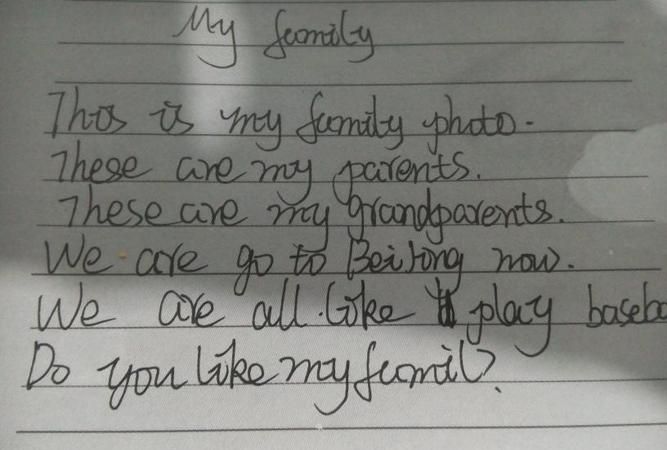 My family
This is my family photo.
These are my parents.
These are my grandparents.
We are go to Beijing now.
We are all like play baseba
Do you like my famil?